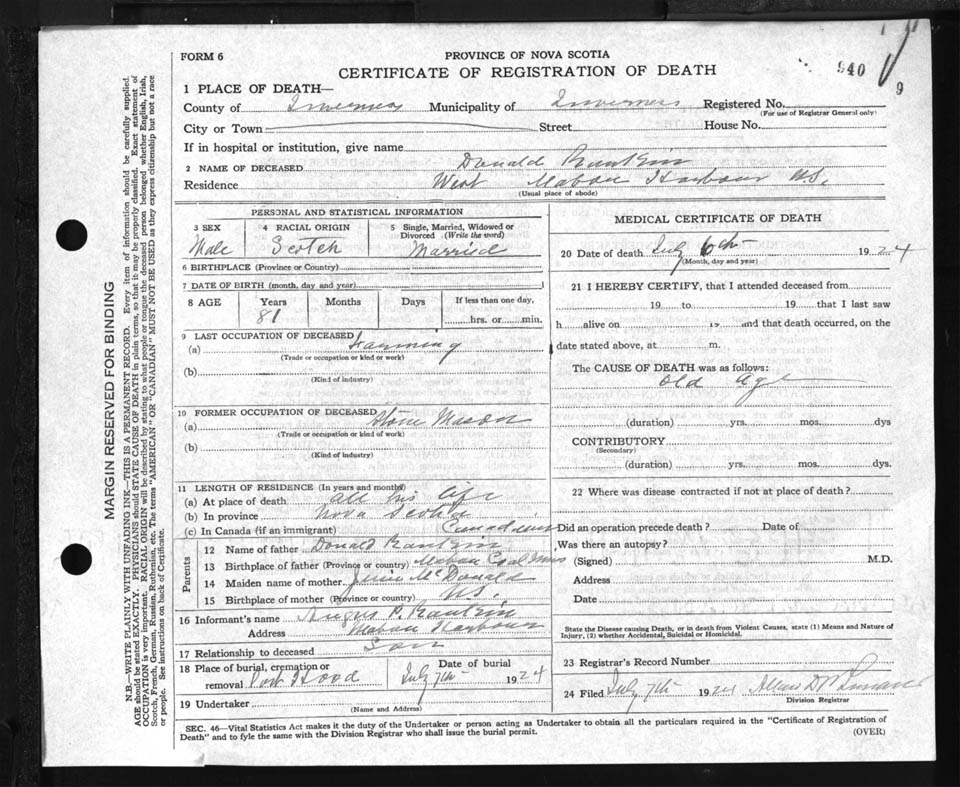 FORM 6
PROVINCE OF NOVA SCOTIA
CERTIFICATE OF REGISTRATION OF DEATH
940
9
1 PLACE OF DEATH—
County of Inverness Municipality of Inverness Registered No.
(For use of Registrar General only)
City or Town Street House No.
If in hospital or institution, give name
2 NAME OF DECEASED Donald Rankin
Residence West Mabou Harbour N.S.
(Usual place of abode)
PERSONAL AND STATISTICAL INFORMATION
3 SEX 4 RACIAL ORIGIN 5 Single, Married, Widowed or Divorced (Write the word)
Male Scotch Married
6 BIRTHPLACE (Province or Country)
7 DATE OF BIRTH (month, day and year)
8 AGE Years Months Days If less than one day,
81 hrs. or min.
9 LAST OCCUPATION OF DECEASED
(a) Farming
(Trade or occupation or kind or work)
(b)
(Kind of industry)
10 FORMER OCCUPATION OF DECEASED
(a) Stone Mason
(Trade or occupation or kind or work)
(b)
(Kind of industry)
11 LENGTH OF RESIDENCE (In years and months)
(a) At place of death all his life
(b) In province Nova Scotia
(c) In Canada (if an immigrant) Canadian
Parents
12 Name of father Donald Rankin
13 Birthplace of father (Province or country) Mabou Coal Mines
14 Maiden name of mother McDonald
15 Birthplace of mother (Province or country) N.S.
16 Informant's name Angus P. Rankin
Address Mabou Harbour
17 Relationship to deceased Son
18 Place of burial, cremation or removal Port Hood Date of burial July 7th 1924
19 Undertaker
(Name and Address)
MEDICAL CERTIFICATE OF DEATH
20 Date of death July 6th 1924
(Month, day and year)
21 I HEREBY CERTIFY, that I attended deceased from
19 to 19 that I last saw
h alive on 19 and that death occurred, on the
date stated above, at m.
The CAUSE OF DEATH was as follows:
Old Age
(duration) yrs. mos. dys
CONTRIBUTORY
(Secondary)
(duration) yrs. mos. dys.
22 Where was disease contracted if not at place of death?
Did an operation precede death? Date of
Was there an autopsy?
(Signed) M.D.
Address
Date
State the Disease causing Death, or in death from Violent Causes, state (1) Means and Nature of
Injury, (2) whether Accidental, Suicidal or Homicidal.
23 Registrar's Record Number
24 Filed July 7th 1924
Division Registrar
SEC. 46—Vital Statistics Act makes it the duty of the Undertaker or person acting as Undertaker to obtain all the particulars required in the "Certificate of Registration of
Death" and to fyle the same with the Division Registrar who shall issue the burial permit.
(OVER)
MARGIN RESERVED FOR BINDING
N.B.—WRITE PLAINLY WITH UNFADING INK—THIS IS A PERMANENT RECORD. Every item of information should be carefully supplied.
AGE should be stated EXACTLY. PHYSICIANS should STATE CAUSE OF DEATH in plain terms, so that it may be properly classified. Exact statement of
OCCUPATION is very important. RACIAL ORIGIN will be described by stating to what people or tongue the deceased person belonged whether English, Irish,
Scotch, French, German, Russian, Ruthenian, etc. The terms "AMERICAN" OR "CANADIAN" MUST NOT BE USED as they express citizenship but not a race
or people. See instructions on back of Certificate.